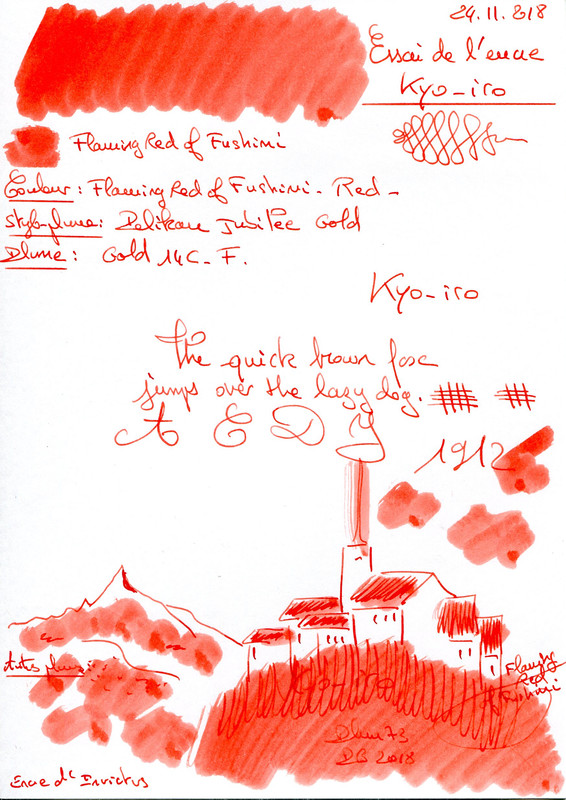 24.11.2018
Essai de l'encre
Kyo-iro
Flaming Red of Fushimi
Couleur : Flaming Red of Fushimi - Red -
Stylo-plume: Pelikan Jubilée Gold
Plume : Gold 14C - F.
Kyo-iro
The quick brown fox
jumps over the lazy dog.
A E D Y
1912
Flaming
Red
of Fushimi
DB 2018
Encre de Invictus